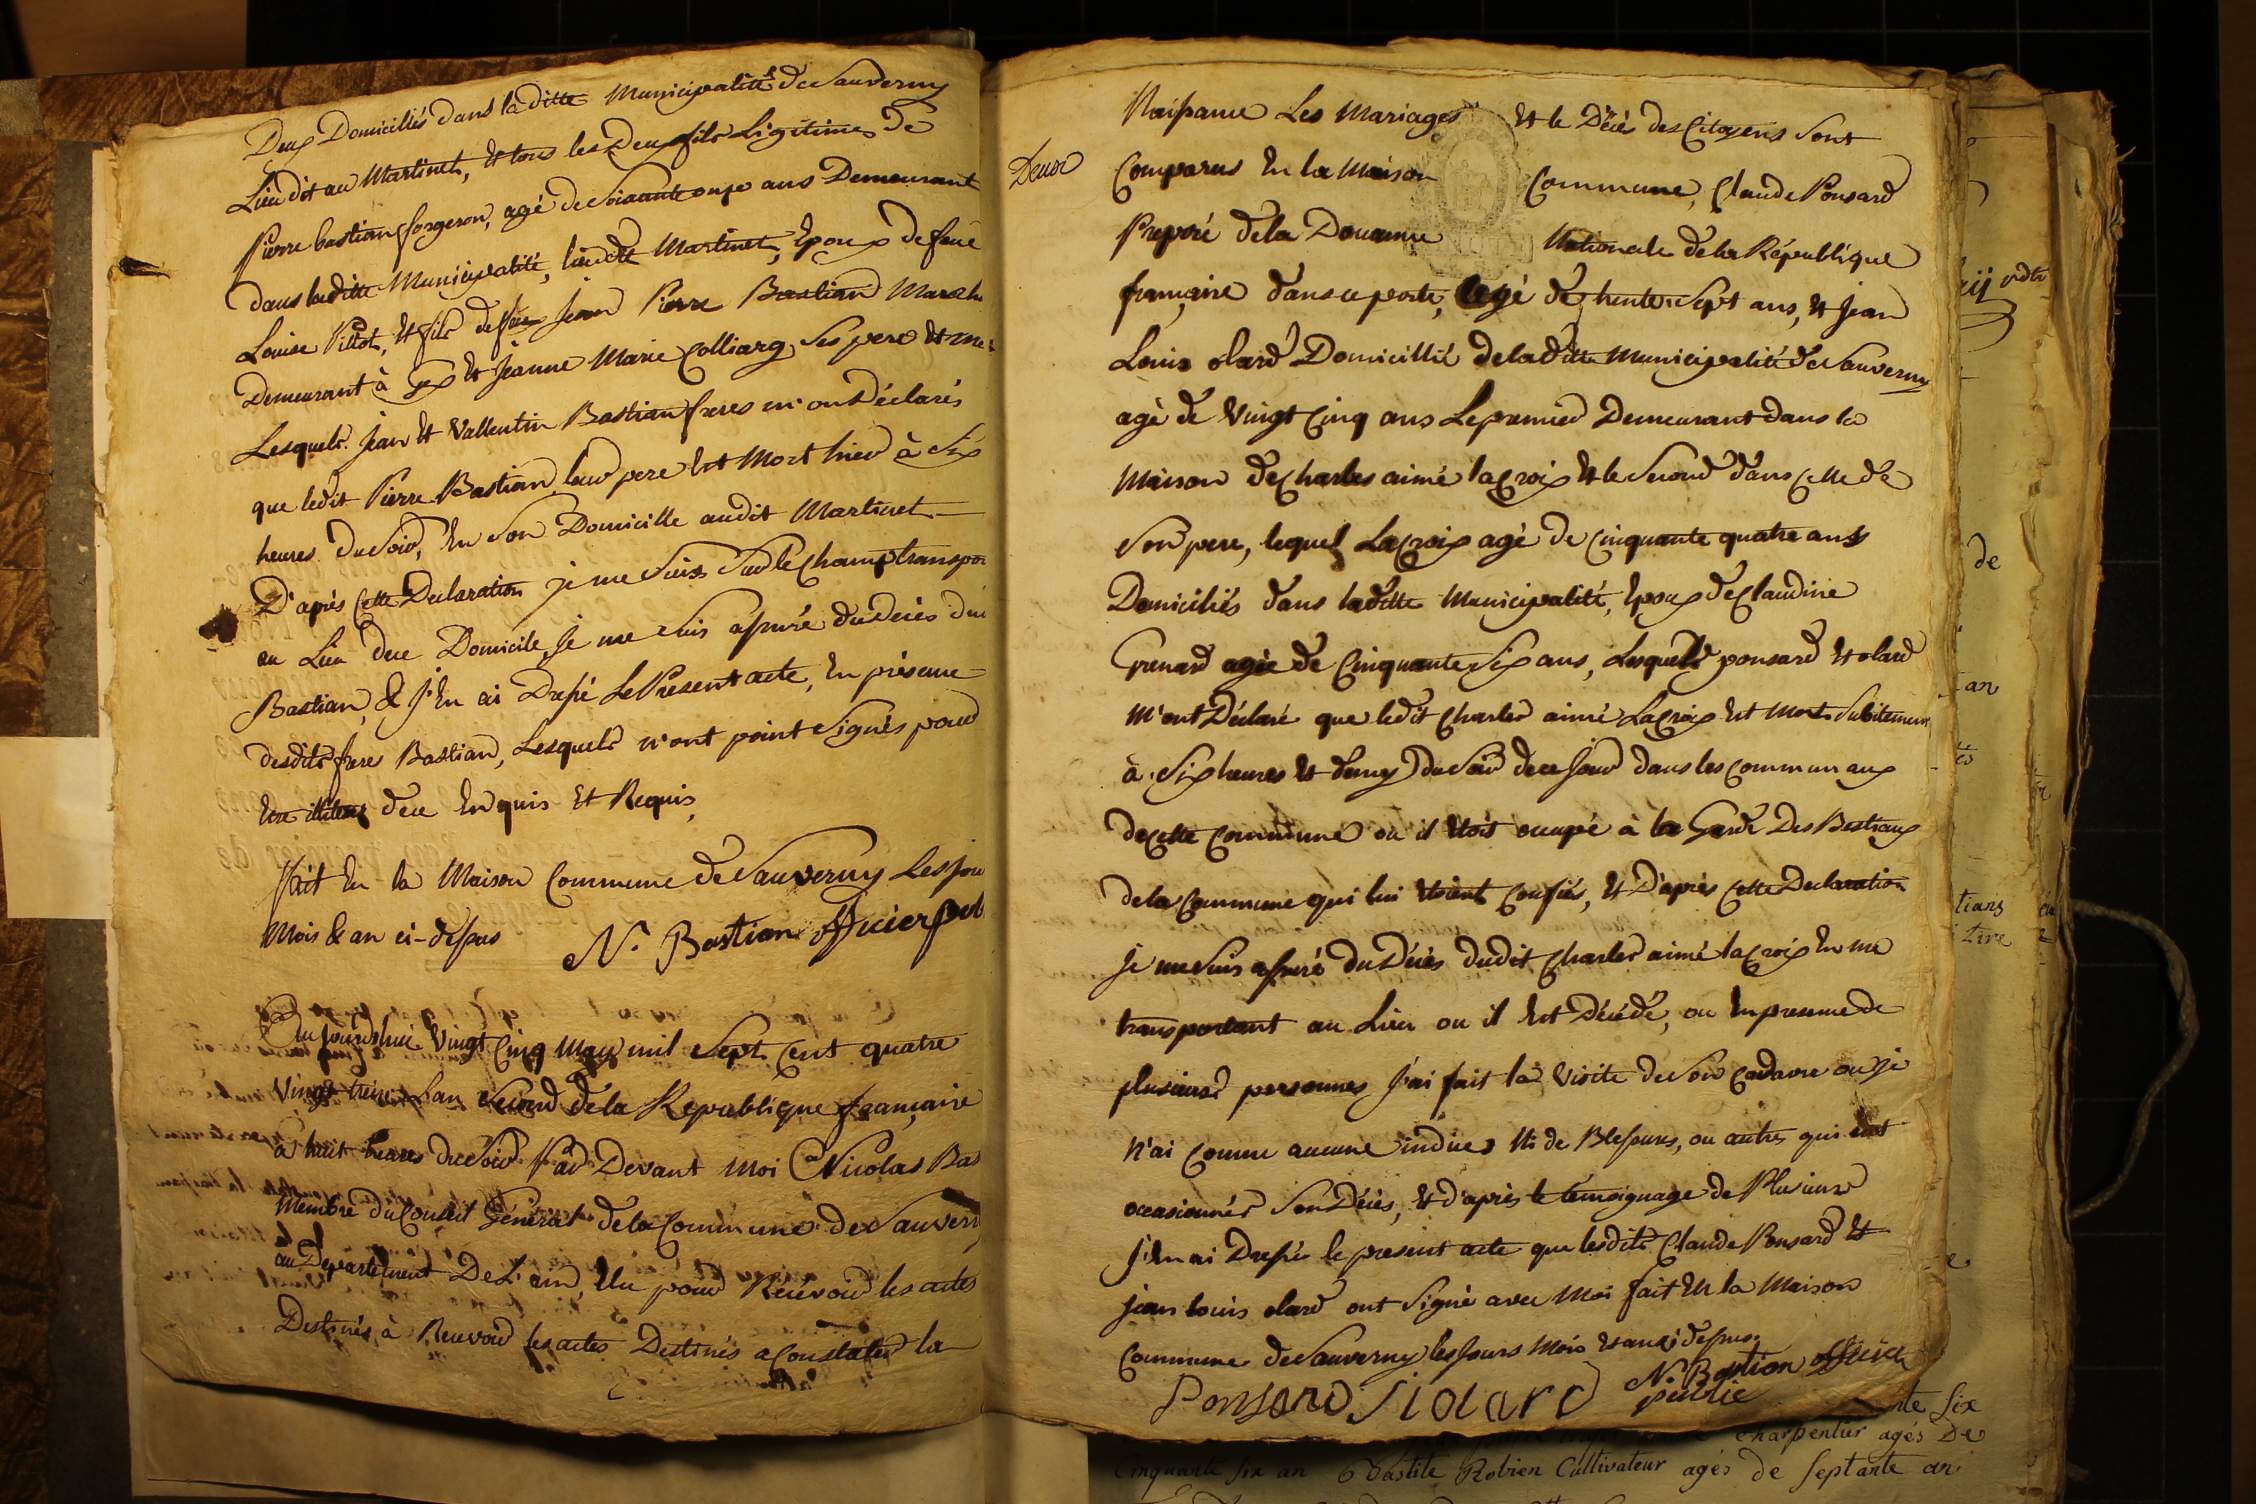 Deux Domiciliés dans la ditte Municipalité de Sauverny
Lieu dit au Martinet, Et tous les Deux fils Légitimes de
Pierre bastian forgeron, agé de Soixante onze ans Demeurant
dans laditte Municipalité, lieu dit Martinet, Epoux de feue
Louise Pillot, Et fils de feu Jean Pierre Bastian Marchd
Demeurant à Gex Et Jeanne Marie Colliarg Ses pere Et me
Lesquels Jean Et Vallentin Bastian freres m'ont Déclarés
que ledit Pierre Bastian leur pere Est Mort hier à Six
heures du Soir, En Son Domicille audit Martinet
D'aprés Cette Declaration je me Suis Sur le Champ transpor
au Lieu dece Domicile, Je me Suis assuré du Décés du
Bastian, & J'En ai Dressé Le Present acte, En présence
desdits freres Bastian, Lesquels n'ont point Signés pour
Etre illiteré dece Enquis Et Requis,
fait En la Maison Commune de Sauverny Les jou
Mois & an ci-dessus N. Bastian Officier pub
Aujourdhui Vingt Cinq May mil Sept Cent quatre
Vingt treize Lan Second de la Republique française
à huit heures du Soir Par Devant Moi Nicolas Bas
Membre du Conseil Général de la Commune de Sauvern
au Departement De L'ain, Elu pour Récévoir les actes
Destinés à Recevoir les actes Destinés a Constater la
Naissance Les Mariages Et le Décés des Citoyens Sont
Deux
Comparus En la Maison Commune, Claude Ponsard
Preposé de la Douanne Nationale de la République
française dans ce poste, agé de trente Sept ans, Et Jean
Louis olard Domicillié de la ditte Municipalité de Sauverny
agé de Vingt Cinq ans Le premier Demeurant dans la
Maison de Charles aimé laCroix Et le Second dans Celle de
Son pere, lequel LaCroix agé de Cinquante quatre ans
Domiciliés dans laditte Municipalité, Epoux de Claudine
Grenard agée de Cinquante Six ans, Lesquels ponsard Et olard
M'ont Déclaré que ledit Charles aimé LaCroix Est Mort Subitement
à Six heures Et demy du Soir de ce Jour dans les Communaux
de Cette Commune ou il Etoit occupé à la Garde Des Bestiaux
de la Commune qui lui Etoient Confiés, Et D'aprés Cette Declaration
Je me Suis assuré du Décés dudit Charles aimé laCroix En me
transportant au Lieu ou il Est Décédé, ou En presence de
plusieurs personnes J'ai fait la Visite de Son Cadavre ou Je
N'ai Connu aucune indices Ni de Blessures, ou autres qui ent
occasionnés Son Décés, Et d'aprés le témoignage de Plusieurs
J'En ai Dressé le present acte que lesdits Claude Ponsard Et
jean louis olard ont Signé avec Moi fait En la Maison
Commune de Sauverny les Jours Mois Et an ci dessus.
Ponsard J l olard N. Bastian officier
public
de
nte Six
charpentier agés De
Cinquante Six an Bastile Robien Cultivateur agés de Septante an